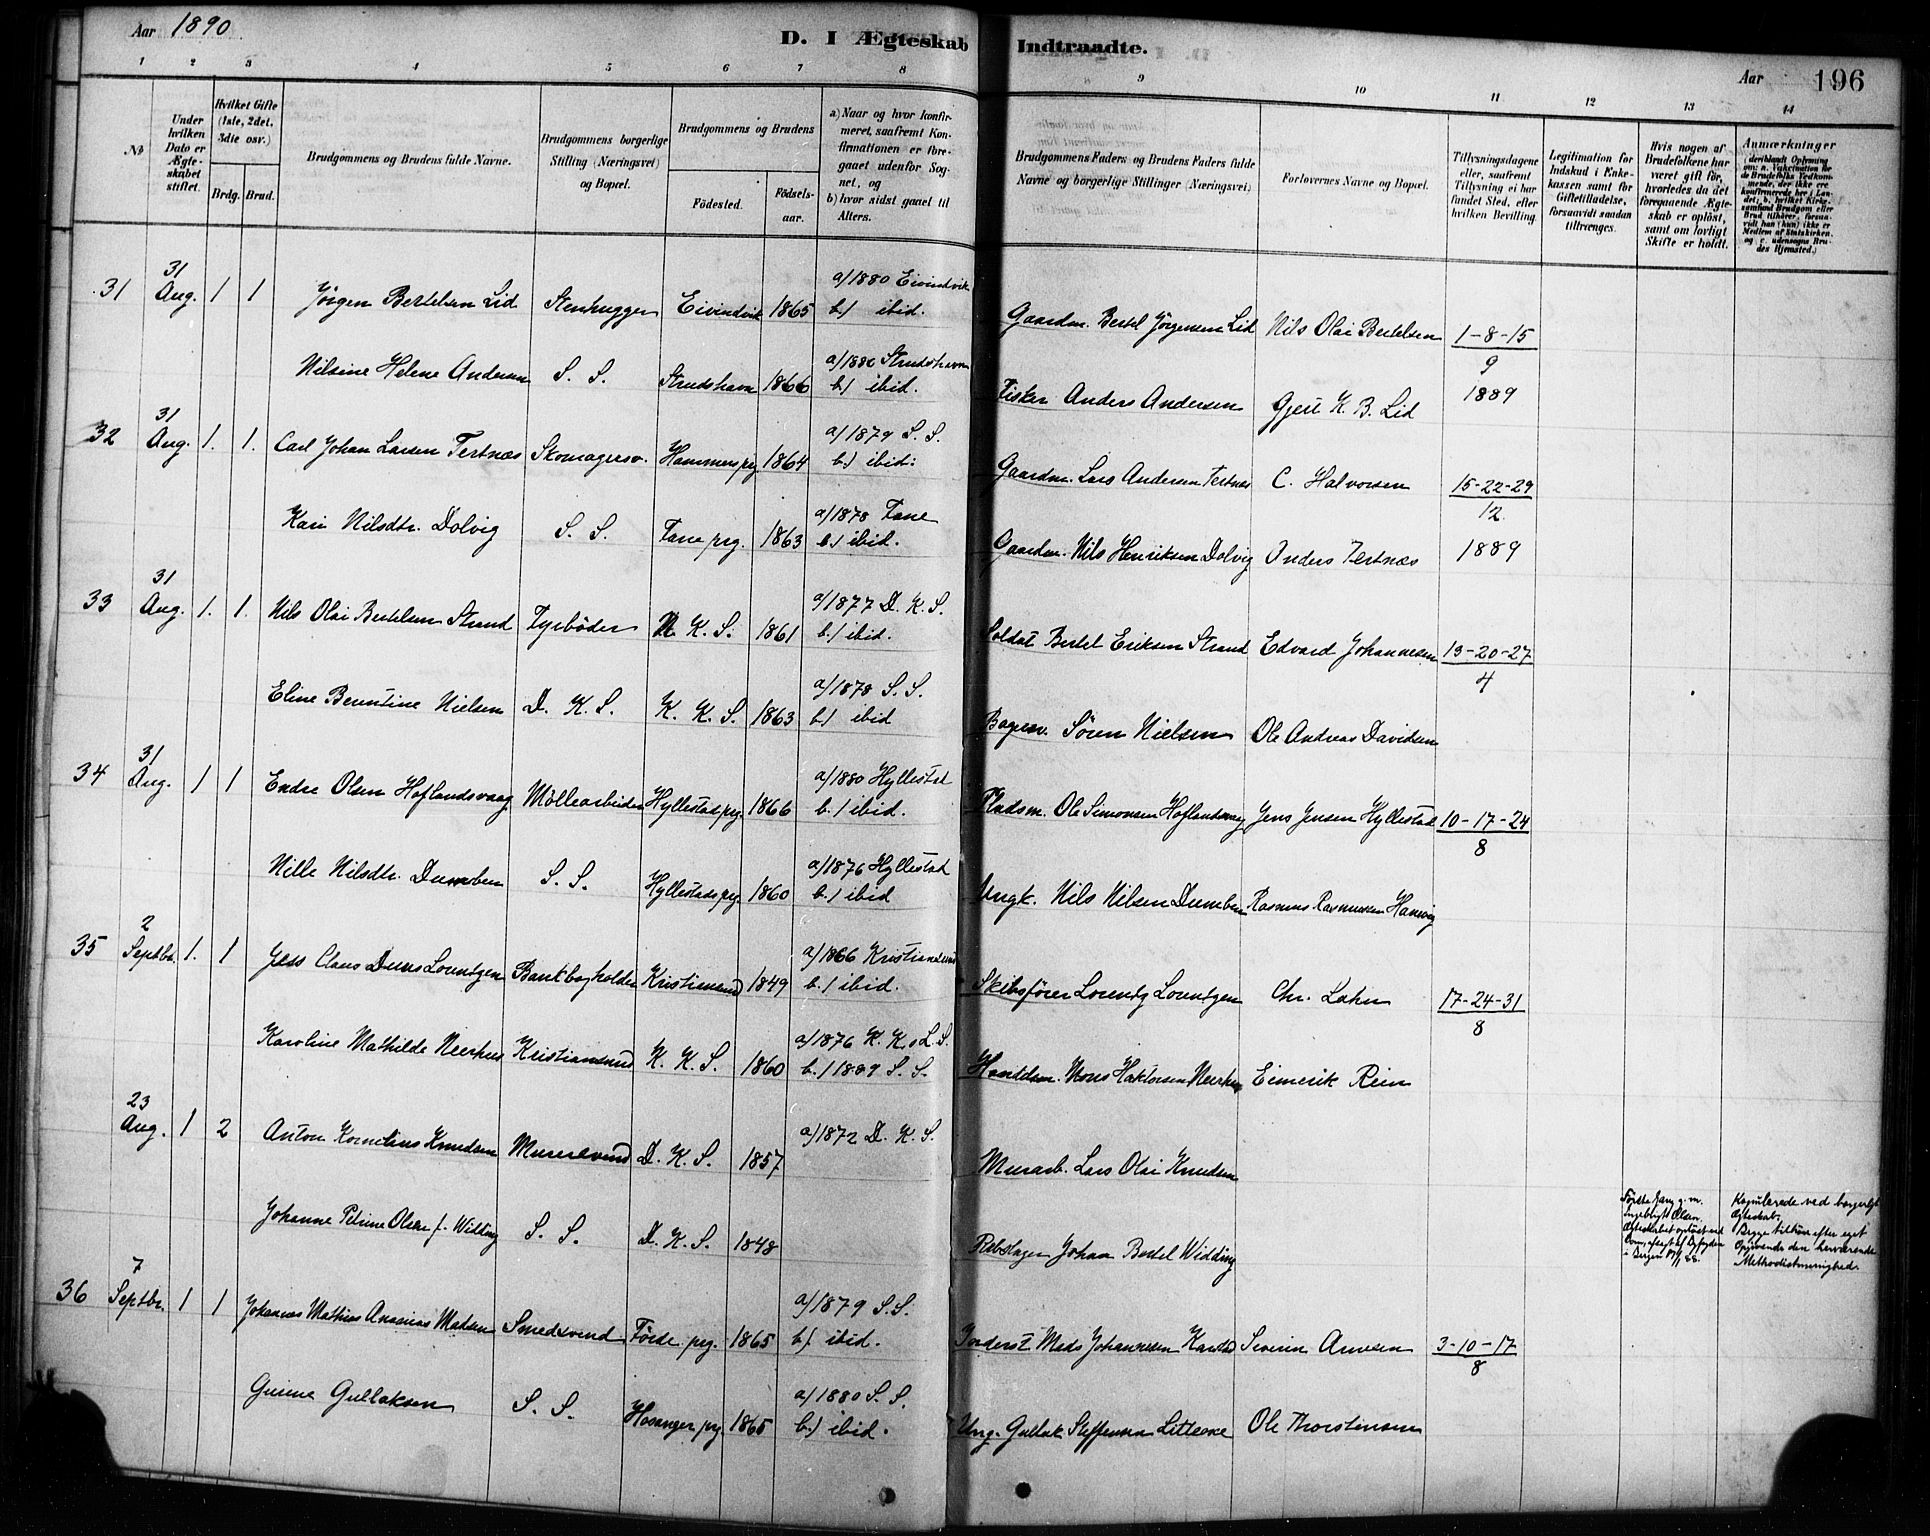 Aar 1890
D. I Ægteskab Indtraadte.
Aar 196
1 2 3 4 5 6 7 8 9 10 11 12 13 14
No
Under hvilken Dato er Ægteskabet stiftet.
Hvilket Gifte (1ste, 2det, 3die osv.)
Brdg. Brud.
Brudgommens og Brudens fulde Navne.
Brudgommens borgerlige Stilling (Næringsvei) og Bopæl.
Brudgommens og Brudens
Fødested. Fødselsaar.
a) Naar og hvor konfirmeret, saafremt Konfirmationen er foregaaet udenfor Sognet, og
b) hvor sidst gaaet til Alters.
Brudgommens Faders og Brudens Faders fulde Navne og borgerlige Stillinger (Næringsvei)
Forlovernes Navne og Bopæl.
Tillysningsdagene eller, saafremt Tillysning ei har fundet Sted, efter hvilken Bevilling.
Legitimation for Indskud i Enkekassen samt for Giftetilladelse, forsaavidt saadan tiltrænges.
Hvis nogen af Brudefolkene har været gift før, hvorledes da det foregaaende Ægteskab er opløst, samt om lovligt Skifte er holdt.
Anmærkninger
(deriblandt Oplysning om: a. Vakcination for de Brudefolks Vedkommende, der ikke ere konfirmerede her i Landet; b. hvilket Kirkesamfund Brudgom eller Brud tilhører, forsaavidt han (hun) ikke er Medlem af Statskirken, og c. udensogns Brudes Hjemsted.)
31 31 Aug. 1 1 Jørgen Bertelsen Lid Stenhugger Eivindvik 1865 a/1880 Eivindvik b/ ibid. Gaardm. Bertel Jørgensen Lid Nils Olai Bertelsen 1-8-15
9
Nilsine Helene Andersen S. S. Strudshavn 1866 a/1880 Strudshavn b/ ibid. Fisker Anders Andersen Gjert K. B. Lid 1889
32 31 Aug. 1. 1. Carl Johan Larsen Tertnæs Skomagersv. Hammers prg. 1864 a/1879 S. S. b.) ibid. Gaardm. Lars Andersen Tertnæs C. Halvorsen 15-22-29
12.
Kari Nilsdtr. Dolvig S. S. Fane prg. 1863 a/1878 Fane b/ ibid. Gaardm. Nils Henriksen Dolvig Anders Tertnæs 1889
33 31 Aug. 1. 1. Nils Olai Bertelsen Strand Fyrbøder N. K. S. 1861 a/1877 D. K. S. b./ ibid. Soldat Bertel Eriksen Strand Edvard Johannesen 13-20-27
4
Eline Berntine Nielsen D. K. S. K. K. S. 1863 a/1878 S. S. b./ ibid Bagersv. Søren Nielsen Ole Andreas Davidsen
34 31 Aug. 1 1 Endre Olsen Hoflandsvaag Møllearbeider Hyllestad prg. 1866 a/1880 Hyllestad b./ ibid. Pladsm. Ole Simonsen Hoflandsvaag Jens Jensen Hyllestad 10-17-24
8
Nille Nilsdtr. S. S. Hyllestad prg. 1860 a/1876 Hyllestad b./ ibid Ungk. Nils Nilsen Rasmus Rasmussen
35 2 Septbr. 1. 1 Jess Claus Lorentzen Bankbogholder Kristiansund 1849 a/1866 Kristiansund b./ ibid. Skibsfører Lorentz Lorentzen Chr. Lahn 17-24-31
8
Karoline Mathilde Neerhus Kristiansund K. K. S. 1860 a/1876 K. K. L. S. b./ 1889 S. S. Handelsm. Mons Neerhus Eimerik Rein
23 Aug. 1 2 Anton Kornelius Knudsen Murersvend D. K. S. 1857 a/1872 D. K. S. Murarb. Lars Olai Knudsen
Johanne Petrine Olsen f. Widding S. S. D. K. S. 1848 Rebslager Johan Bertel Widding
Første Gang g. m. Ingebrigt Olsen. Ægteskabet opløst ved i Bergen 88.
Kopulerede ved borgerligt Ægteskab. Begge tilhøre efter eget Opgivende den herværende Methodistmenighed.
36 7 Septbr. 1 1 Johannes Mathias Ananias Madsen Smedsvend Førde prg. 1865 a/1879 S.S. b/. ibid. Inderst Mads Johannesen Severin Arnesen 3-10-17
8
Gurine Gullaksen S. S. Hosanger prg. 1865 a/1880 S. S. b.) ibid. Ung. Gullak Steffensen Ole Thorstensen